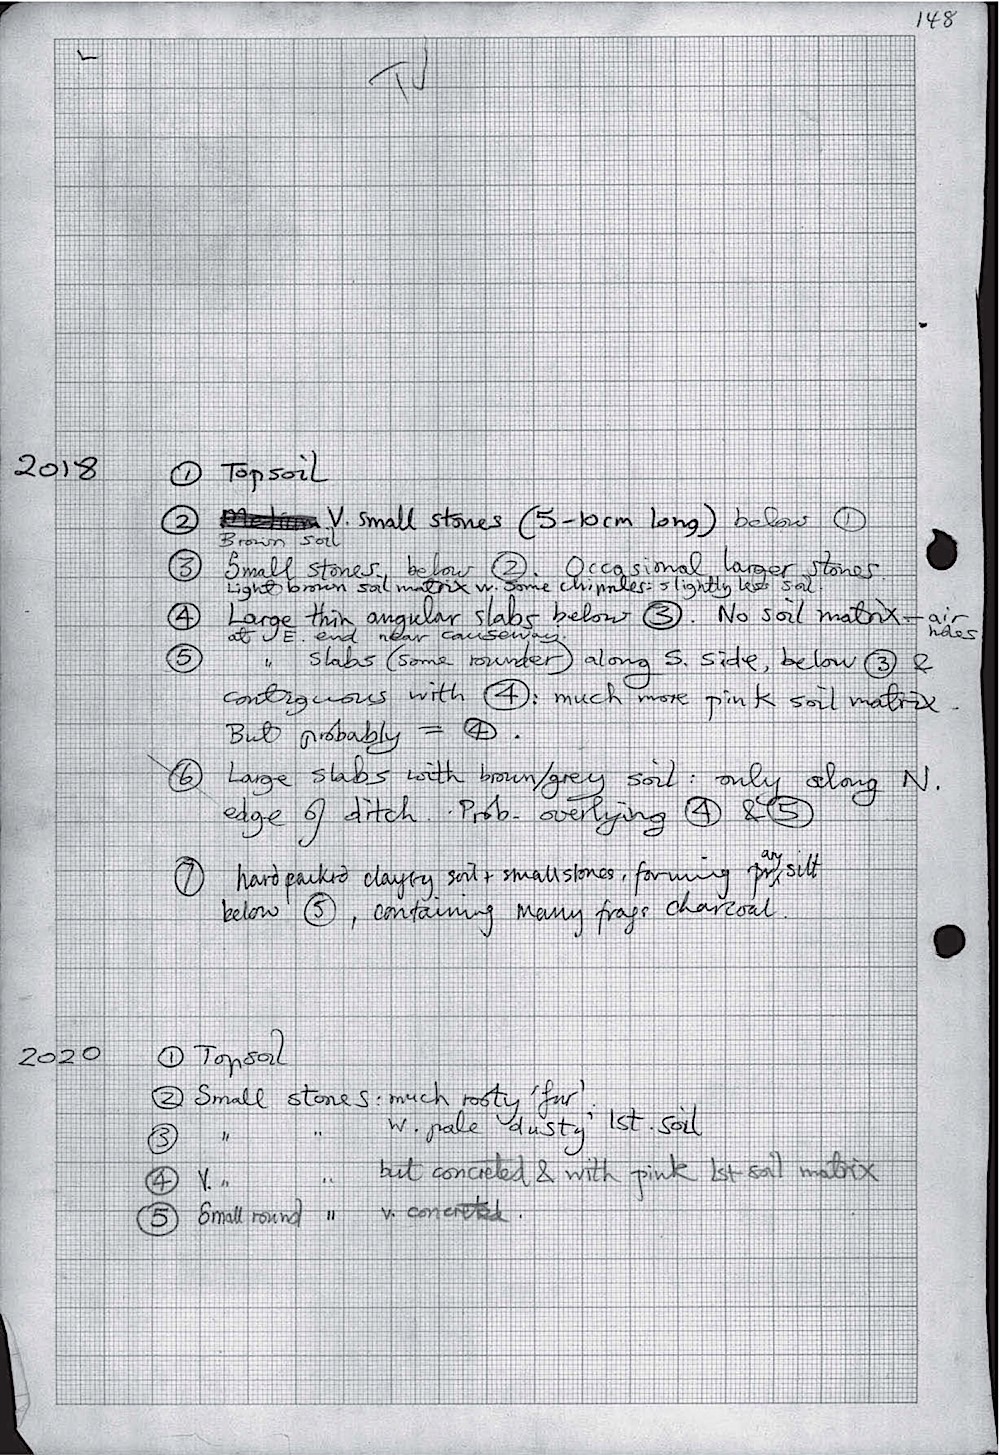 148
TJ
2018 ① Topsoil
② V. small stones (5-10cm long) below ①
Brown soil
③ Small stones, below ②. Occasional larger stones
Light brown soil matrix w. some chipples: slightly less soil.
④ Large thin angular slabs below ③. No soil matrix - air holes
at E. end near causeway.
⑤ " slabs (some rounder) along S. side, below ③ &
contiguous with ④: much more pink soil matrix.
But probably = ④.
⑥ Large slabs with brown/grey soil: only along N.
edge of ditch. Prob. overlying ④ & ⑤
⑦ hard packed clayey soil + small stones, forming pr^ary silt
below ⑤, containing many frags charcoal.
2020 ① Topsoil
② Small stones: much rooty 'fur'
③ " " w. pale 'dusty' lst. soil
④ V. " " but concreted & with pink lst soil matrix
⑤ Small round " v. concreted.